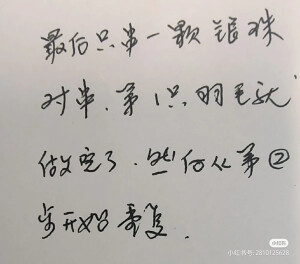 最后只串一颗银珠
对串.第1只羽毛就
做完了.然后从第②
步开始重复.
小红书
小红书号:2810125628